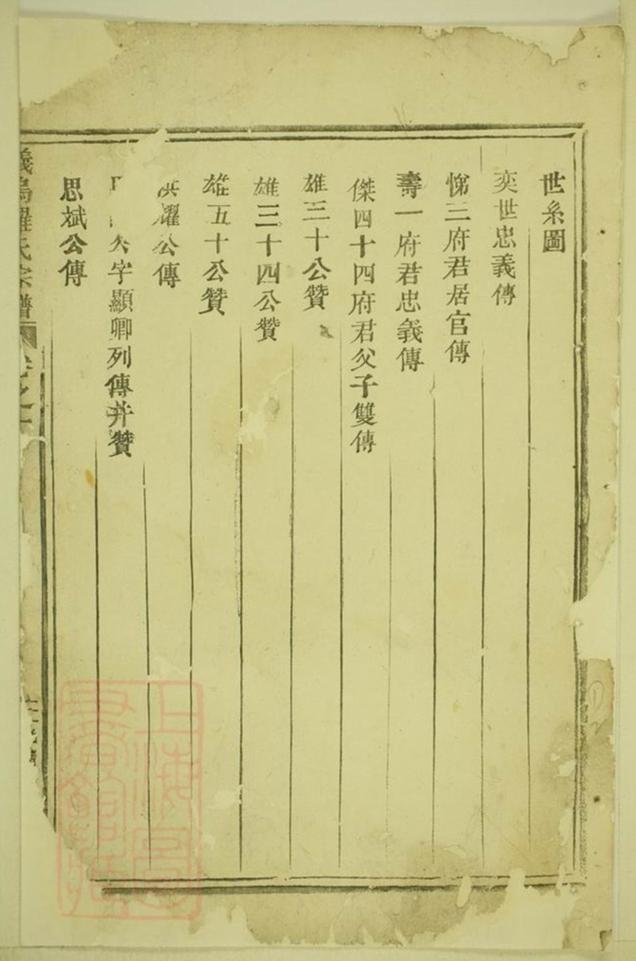 世系圖
奕世忠義傳
悌三府君居官傳
壽一府君忠義傳
傑四十四府君父子雙傳
雄三十公贊
雄三十四公贊
雄五十公贊
燿公傳
字顯卿列傳并贊
思斌公傳
義烏 氏宗譜 卷之一
上海圖書館藏